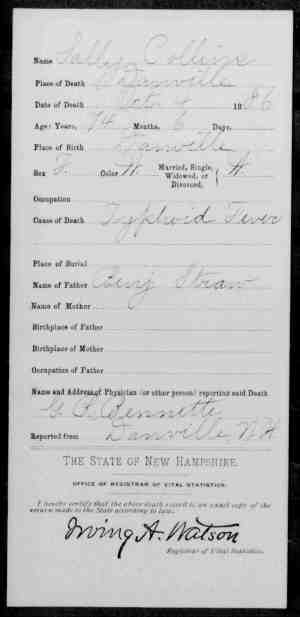 Name Sally Collins
Place of Death Danville
Date of Death Oct. 4 1886
Age: Years, 74 Months, 6 Days,
Place of Birth Danville
Sex F. Color W Married, Single, Widowed, or Divorced. W
Occupation
Cause of Death Typhoid Fever
Place of Burial
Name of Father Benj Straw
Name of Mother
Birthplace of Father
Birthplace of Mother
Occupation of Father
Name and Address of Physician (or other person) reporting said Death
G. R. Bennette
Reported from Danville, N.H
THE STATE OF NEW HAMPSHIRE.
OFFICE OF REGISTRAR OF VITAL STATISTICS.
I hereby certify that the above death record is an exact copy of the
return made to the State according to law.
Irving A. Watson
Registrar of Vital Statistics.